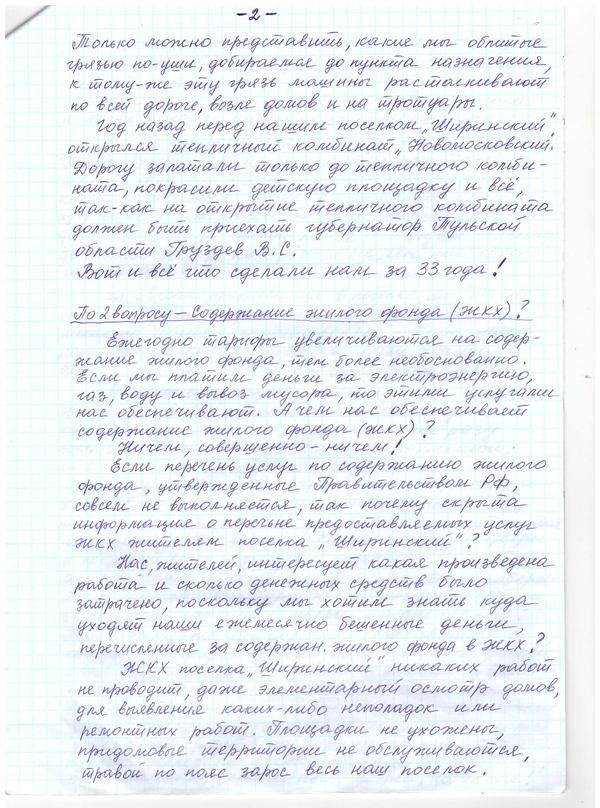 -2-
Только можно представить, какие мы облитые
грязью по-уши, добираемся до пункта назначения,
к тому-же эту грязь машины растаскивают
по всей дороге, возле домов и на тротуары.
Год назад перед нашим поселком „Ширинский",
открылся тепличный комбинат „Новомосковский.
Дорогу залатали только до тепличного комби-
ната, покрасили детскую площадку и всё,
так-как на открытие тепличного комбината
должен быть приехать губернатор Тульской
области Груздев В.С.
Вот и всё что сделали нам за 33 года!
По 2 вопросу – Содержание жилого фонда (ЖКХ)?
Ежегодно тарифы увеличиваются на содер-
жание жилого фонда, тем более необоснованно.
Если мы платим деньги за электроэнергию,
газ, воду и вывоз мусора, то этими услугами
нас обеспечивают. А чем нас обеспечивает
содержание жилого фонда (ЖКХ)?
Ничем, совершенно-ничем!
Если перечень услуг по содержанию жилого
фонда, утвержденные Правительством РФ,
совсем не выполняется, так почему скрыта
информация о перечне предоставляемых услуг
ЖКХ жителям поселка „Ширинский"?
Нас, жителей, интересует какая произведена
работа и сколько денежных средств было
затрачено, поскольку мы хотим знать куда
уходят наши ежемесячно бешенные деньги,
перечисленные за содержан. жилого фонда в ЖКХ?
ЖКХ поселка „Ширинский" никаких работ
не проводит, даже элементарный осмотр домов,
для выявление каких-либо неполадок или
ремонтных работ. Площадки не ухожены,
придомовые территории не обслуживаются,
травой по пояс зарос весь наш поселок.